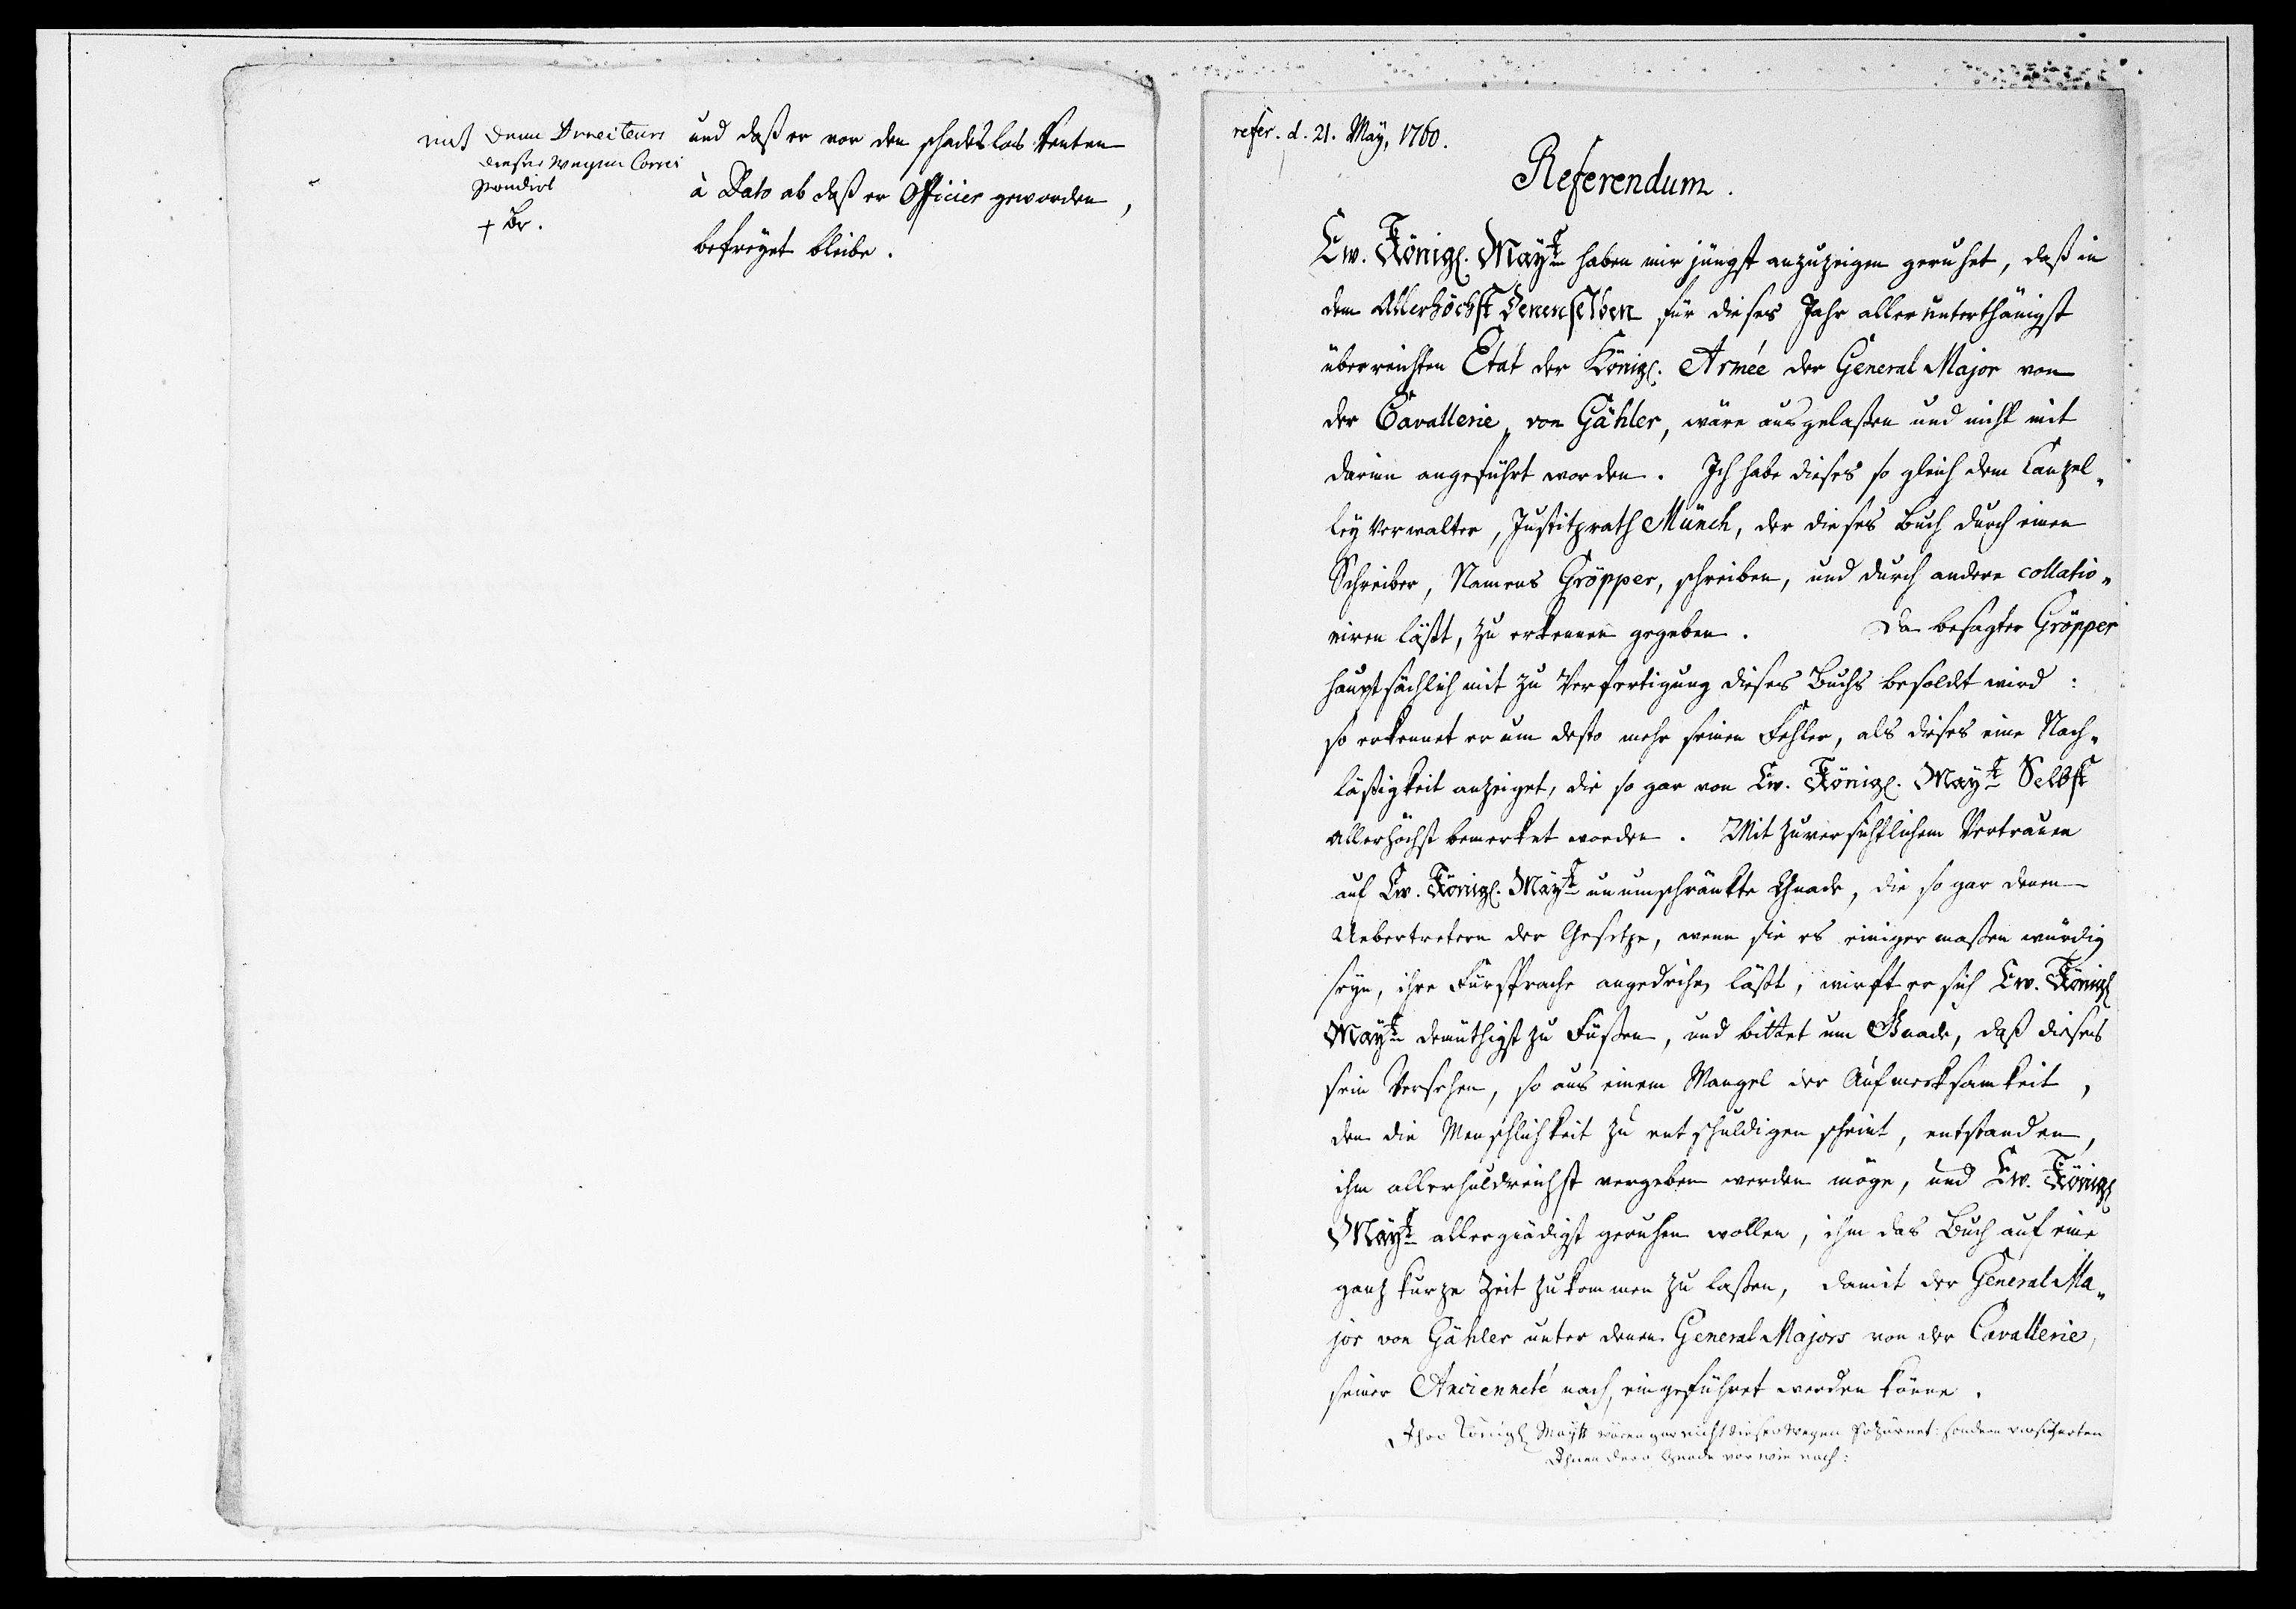 mit denen Directeurs
dieser wegen Corres
pondirt
+ Br.
und daß er von den schadeslos Renten
à Dato ab daß er Officier geworden,
befreyet bleibe.
refer. d. 21. May, 1760.
Referendum.
Ew. Königl. Mayt haben mir jüngst anzuzeigen geruhet, daß in
dem Allerhöchst Denenselben für dieses Jahr allerunterthänigst
überreichten Etát der Königl. Armée der General Major von
der Cavallerie, von Gähler, wäre ausgelaßen und nicht mit
darinn angeführt worden. Ich habe dieses so gleich dem Canzel„
ley Verwalter, Justitzrath Münch, der dieses Buch durch einen
Schreiber, Namens Gröpper, schreiben, und durch andere collatio„
niren läßt, zu erkennen gegeben. Da besagter Gröpper
hauptsächlich mit zu Verfertigung dieses Buchs besoldet wird:
so erkennet er um desto mehr seinen Fehler, als dieses eine Nach„
läßigkeit anzeiget, die so gar von Ew. Königl. Mayt Selbst
allerhöchst bemerket worden. Mit zuversichtlichem Vertrauen
auf Ew. Königl. Mayt unumschränkte Gnade, die so gar denen
Uebertretern der Gesetze, wenn sie es einiger maßen würdig
seyn, ihre Fürsprache angedeihen läßt, wirft er sich Ew. Königl
Mayt demüthigst zu Füßen, und bittet um Gnade, daß dieses
sein Versehen, so aus einem Mangel der Aufmerksamkeit,
den die Menschlichkeit zu entschuldigen scheint, entstanden,
ihm allerhuldreichst vergeben werden möge, und Ew. Königl
Mayt allergnädigst geruhen wollen, ihm das Buch auf eine
ganz kurze Zeit zukommen zu laßen, damit der General Ma„
jor von Gähler unter denen General Majors von der Cavallerie,
seiner Ancienneté nach, eingeführet werden könne.
Ihro Königl Maytt wären gar nicht dieserwegen erzürnet: sondern versicherten
Ihnen dero Gnade vor wie nach: